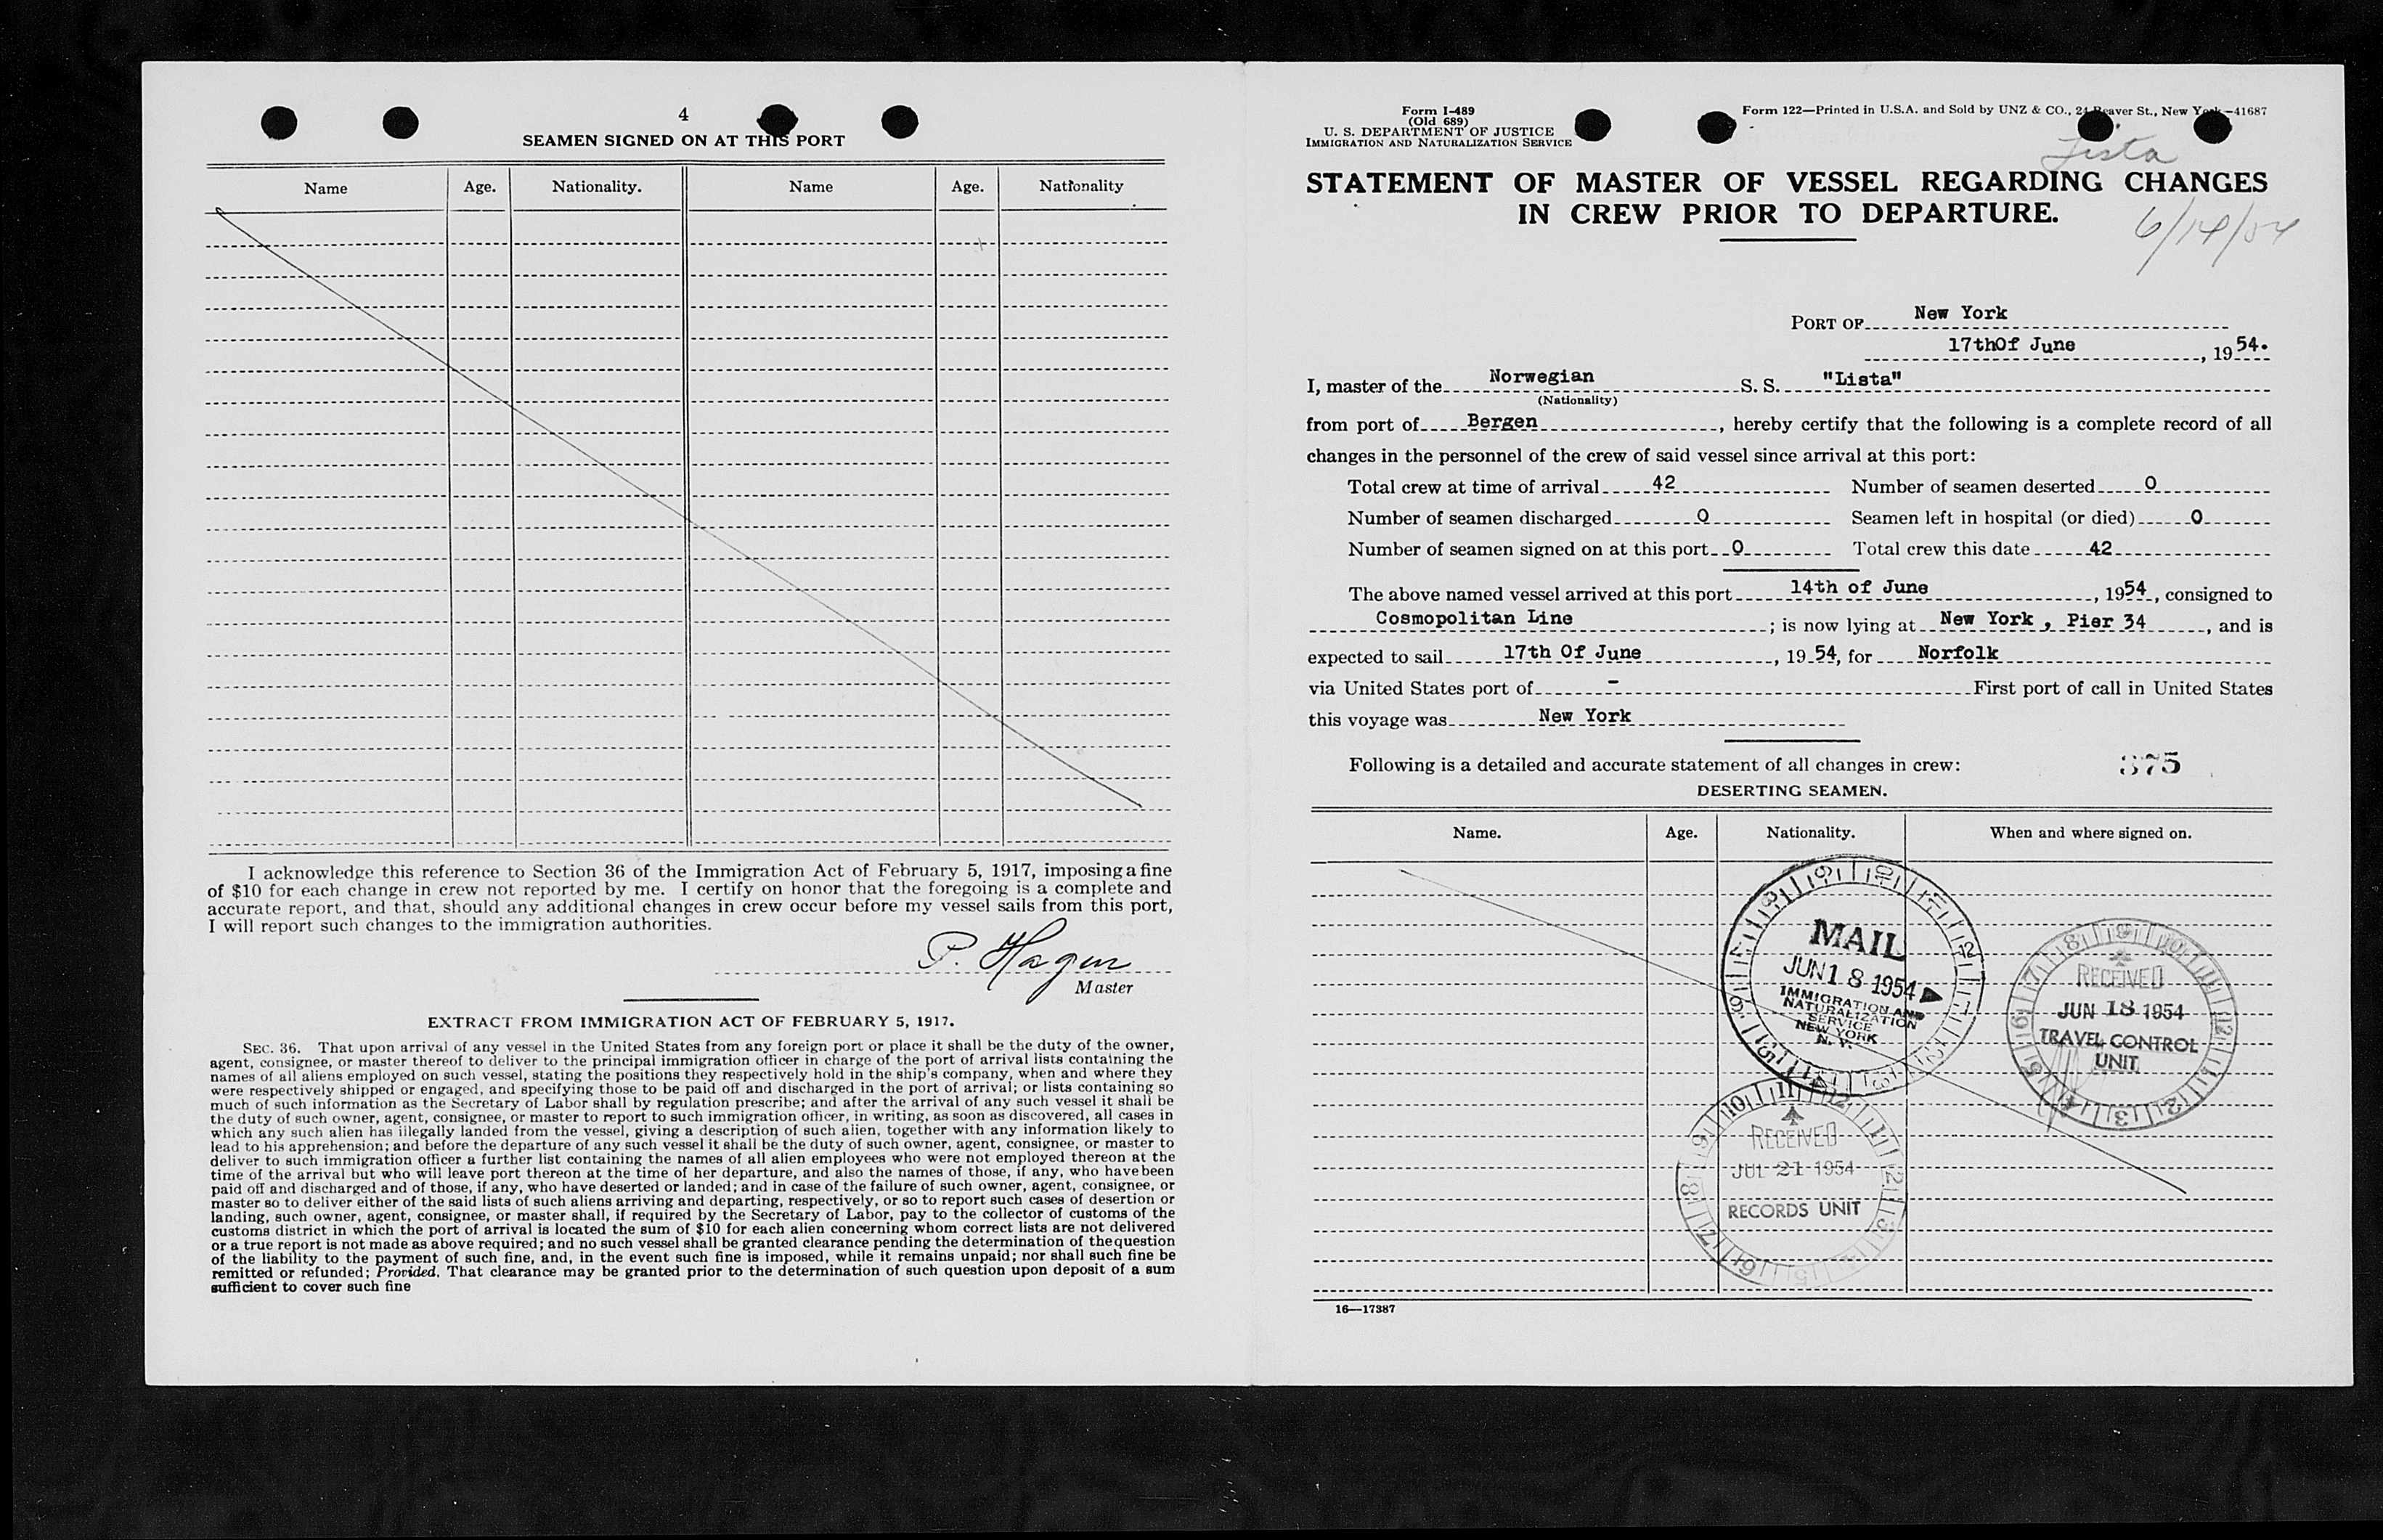 4
SEAMEN SIGNED ON AT THIS PORT
Name Age. Nationality. Name Age. Nationality
I acknowledge this reference to Section 36 of the Immigration Act of February 5, 1917, imposing a fine
of $10 for each change in crew not reported by me. I certify on honor that the foregoing is a complete and
accurate report, and that, should any additional changes in crew occur before my vessel sails from this port,
I will report such changes to the immigration authorities.
P. Hagen
Master
EXTRACT FROM IMMIGRATION ACT OF FEBRUARY 5, 1917.
SEC. 36. That upon arrival of any vessel in the United States from any foreign port or place it shall be the duty of the owner,
agent, consignee, or master thereof to deliver to the principal immigration officer in charge of the port of arrival lists containing the
names of all aliens employed on such vessel, stating the positions they respectively hold in the ship's company, when and where they
were respectively shipped or engaged, and specifying those to be paid off and discharged in the port of arrival; or lists containing so
much of such information as the Secretary of Labor shall by regulation prescribe; and after the arrival of any such vessel it shall be
the duty of such owner, agent, consignee, or master to report to such immigration officer, in writing, as soon as discovered, all cases in
which any such alien has illegally landed from the vessel, giving a description of such alien, together with any information likely to
lead to his apprehension; and before the departure of any such vessel it shall be the duty of such owner, agent, consignee, or master to
deliver to such immigration officer a further list containing the names of all alien employees who were not employed thereon at the
time of the arrival but who will leave port thereon at the time of her departure, and also the names of those, if any, who have been
paid off and discharged and of those, if any, who have deserted or landed; and in case of the failure of such owner, agent, consignee, or
master so to deliver either of the said lists of such aliens arriving and departing, respectively, or so to report such cases of desertion or
landing, such owner, agent, consignee, or master shall, if required by the Secretary of Labor, pay to the collector of customs of the
customs district in which the port of arrival is located the sum of $10 for each alien concerning whom correct lists are not delivered
or a true report is not made as above required; and no such vessel shall be granted clearance pending the determination of the question
of the liability to the payment of such fine, and, in the event such fine is imposed, while it remains unpaid; nor shall such fine be
remitted or refunded; Provided, That clearance may be granted prior to the determination of such question upon deposit of a sum
sufficient to cover such fine
Form I-489
(Old 689)
U. S. DEPARTMENT OF JUSTICE
IMMIGRATION AND NATURALIZATION SERVICE
Form 122—Printed in U.S.A. and Sold by UNZ & CO., 24 Beaver St., New York—41687
Lista
STATEMENT OF MASTER OF VESSEL REGARDING CHANGES
IN CREW PRIOR TO DEPARTURE.
6/14/54
PORT OF New York
17thOf June, 1954.
I, master of the Norwegian S. S. "Lista"
(Nationality)
from port of Bergen, hereby certify that the following is a complete record of all
changes in the personnel of the crew of said vessel since arrival at this port:
Total crew at time of arrival 42 Number of seamen deserted 0
Number of seamen discharged 0 Seamen left in hospital (or died) 0
Number of seamen signed on at this port 0 Total crew this date 42
The above named vessel arrived at this port 14th of June, 1954, consigned to
Cosmopolitan Line; is now lying at New York, Pier 34, and is
expected to sail 17th Of June, 1954, for Norfolk
via United States port of - First port of call in United States
this voyage was New York
Following is a detailed and accurate statement of all changes in crew: 375
DESERTING SEAMEN.
Name. Age. Nationality. When and where signed on.
MAIL
JUN 18 1954
IMMIGRATION AND
NATURALIZATION
SERVICE
NEW YORK
N. Y.
RECEIVED
JUN 18 1954
TRAVEL CONTROL
UNIT
RECEIVED
JUL 21 1954
RECORDS UNIT
16—17387